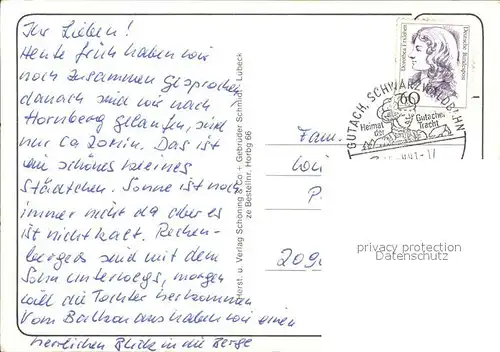 Ihr Lieben!
Heute früh haben wir
noch zusammen gesprochen,
danach sind wir nach
Hornberg gelaufen, sind
nur ca 20 min. Das ist
ein schönes kleines
Städtchen. Sonne ist noch
immer nicht da aber es
ist nicht kalt. Rechen-
bergers sind mit dem
Sohn unterwegs, morgen
will die Tochter herkommen
Vom Balkon aus haben wir einen
herrlichen Blick in die Berge
Herst. u. Verlag Schöning & Co + Gebrüder Schmidt, Lübeck
ze Bestellnr. Horbg 66
Dorothea Erxleben
Deutsche Bundespost
60
GUTACH, SCHWARZWALDBAHN
Heimat der
Gutacher Tracht
Fam.
209
privacy protection
datenschutz